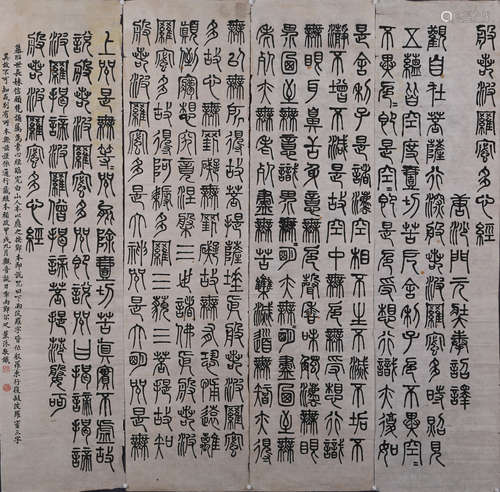 般若波羅蜜多心經
唐沙門元奘奉詔譯
觀自在菩薩行深般若波羅蜜多時照見
五蘊皆空度一切苦厄舍利子色不異空空
不異色色即是空空即是色受想行識亦復如
是舍利子是諸法空相不生不滅不垢不
淨不增不減是故空中無色無受想行識
無眼耳鼻舌身意無色聲香味觸法無眼
界乃至無意識界無無明亦無無明盡乃至無
老死亦無老死盡無苦集滅道無智亦無得
以無所得故菩提薩埵依般若波羅蜜
多故心無罣礙無罣礙故無有恐怖遠離
顛倒夢想究竟涅槃三世諸佛依般若波
羅蜜多故得阿耨多羅三藐三菩提故知
般若波羅蜜多是大神咒是大明咒是無
上咒是無等等咒能除一切苦真實不虛故
說般若波羅蜜多咒即說咒曰揭諦揭諦
波羅揭諦波羅僧揭諦菩提薩婆訶
般若波羅蜜多心經